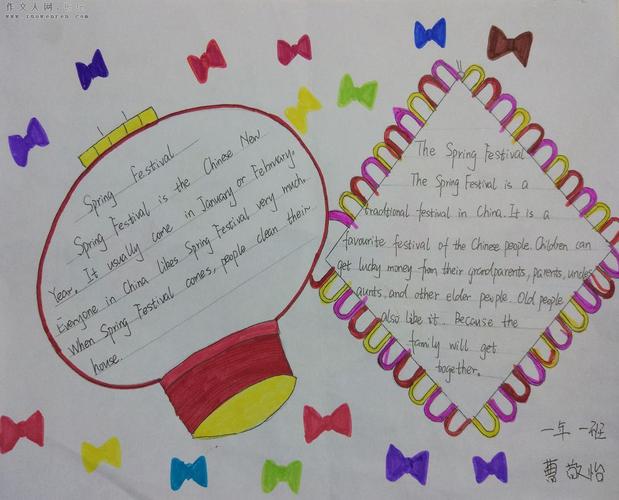 作文人网
www.zuowenren.com
Spring Festival
Spring Festival is the Chinese New
Year. It usually come in January or February.
Everyone in China likes Spring Festival very much.
When Spring Festival comes, people clean their
house.
The Spring Festival
The Spring Festival is a
traditional festival in China. It is a
favourite festival of the Chinese people. Children can
get lucky money from their grandparents, parents, uncles
aunts, and other elder people. Old people
also like it. Because the
family will get
together.
一年 一班
曹 敬怡